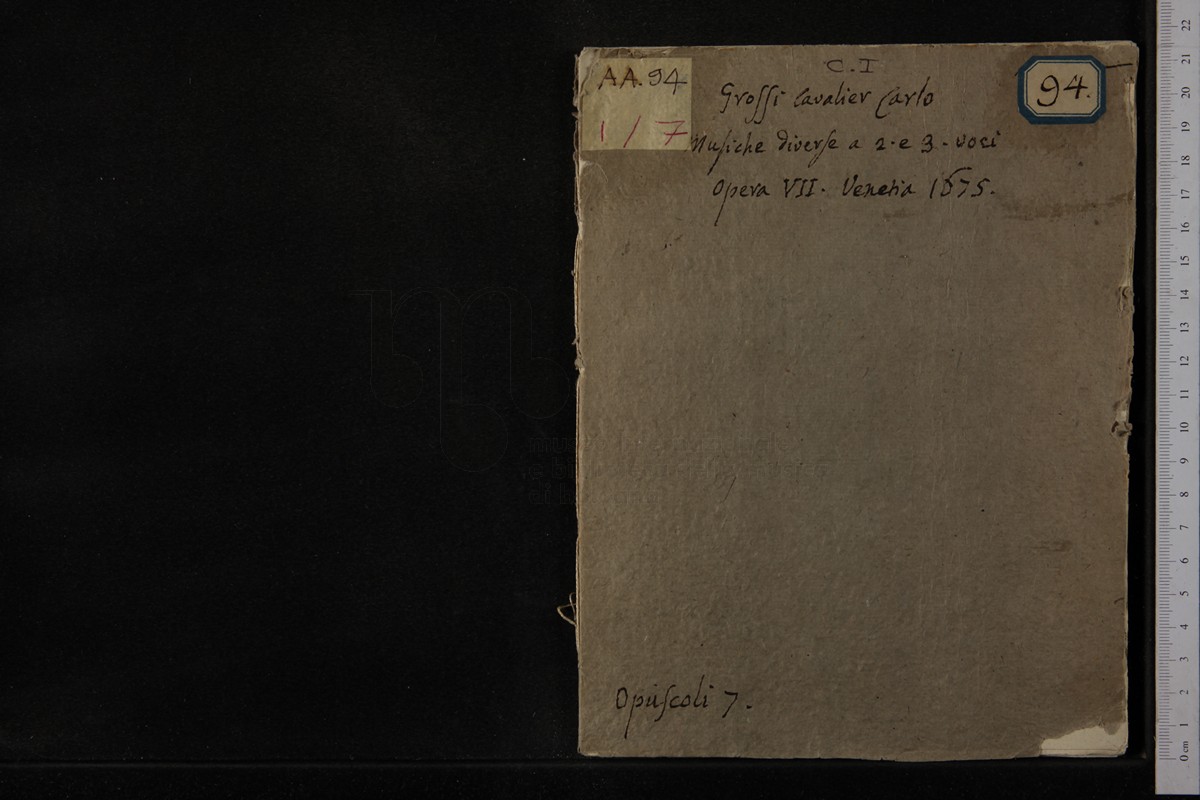 AA.94
1/7
C.I
94.
Grossi Cavalier Carlo
Musiche diverse a 2. e 3. voci
Opera VII. Venetia 1675.
Opuscoli 7.
22
21
20
19
18
17
16
15
14
13
12
11
10
9
8
7
6
5
4
3
2
1
0 cm